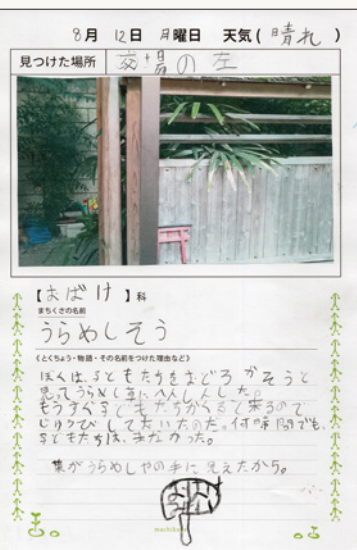 8月 12日 月曜日 天気( 晴れ )
見つけた場所 交場の左
【おばけ】科
まちくさの名前
うらめしそう
《とくちょう・物語・その名前をつけた理由など》
ぼくは、子どもたちをおどろかそうと
思ってうらめし草にへんしんした。
もうすぐ子どもたちがくると来るので
じゅんびしてたいたのだ。何時間でも、
子どもたちは、来なかった。
葉がうらめしやの手に見えたから。